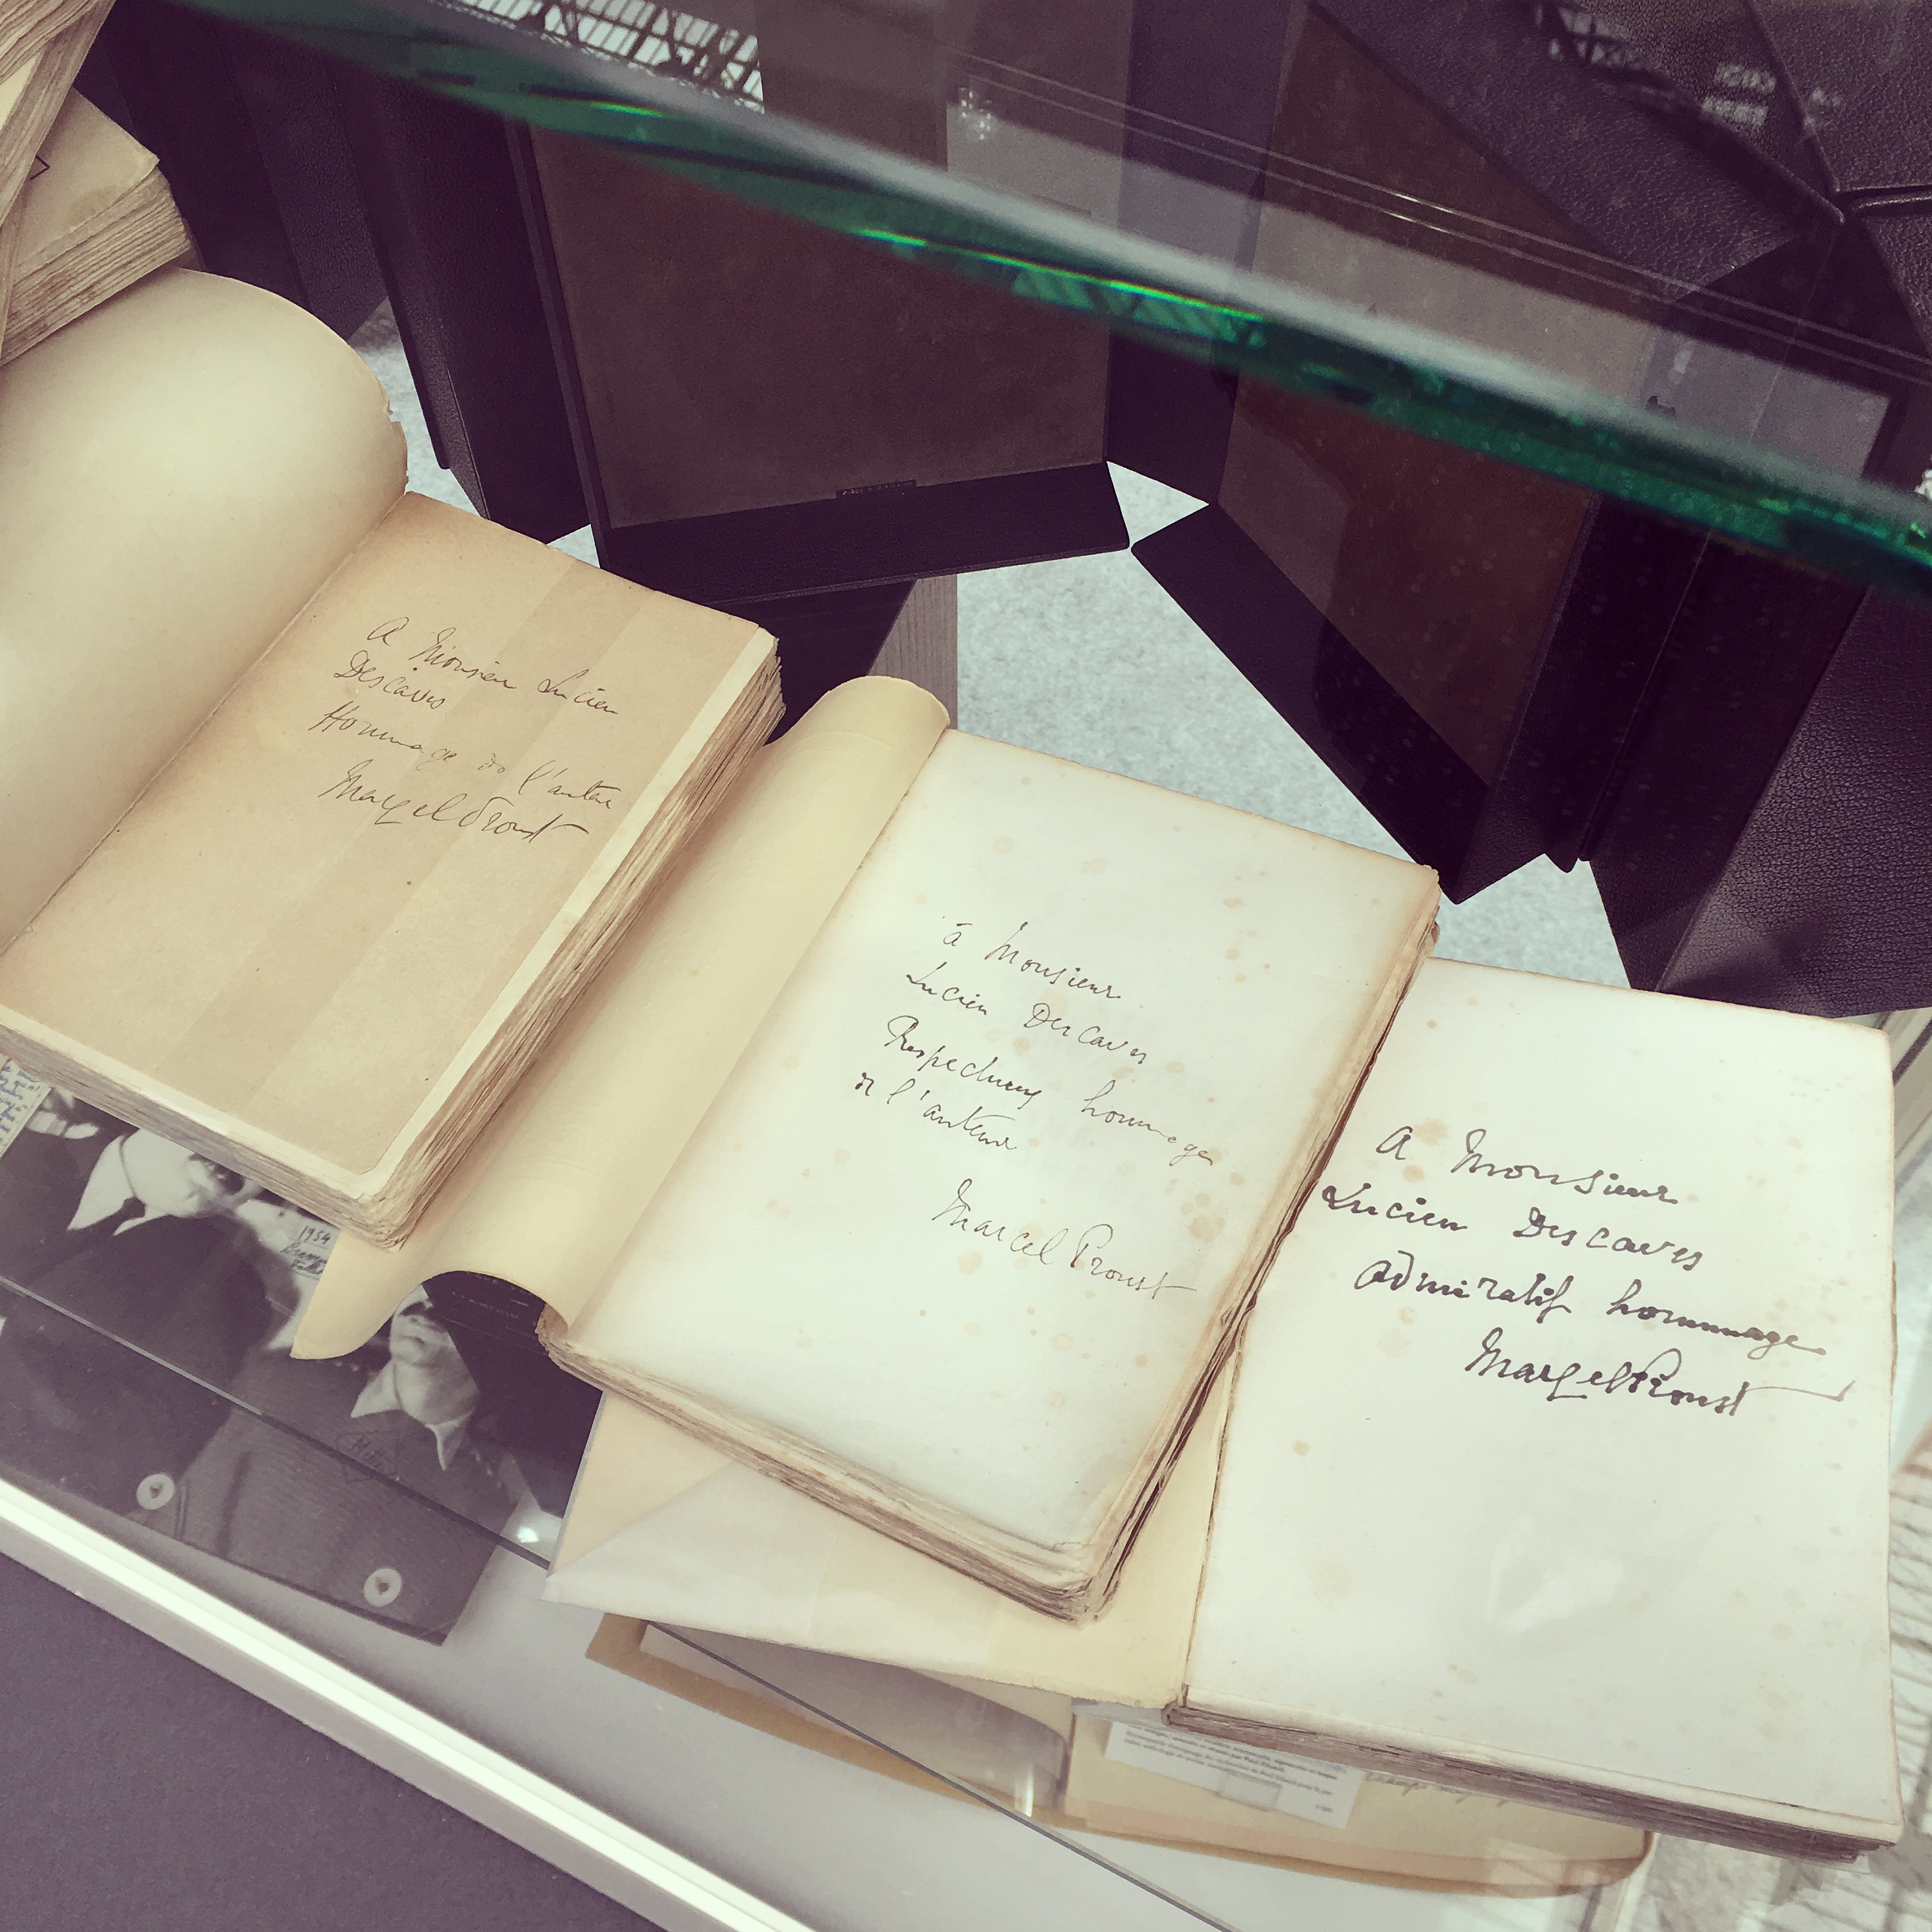 A Monsieur Lucien
Descaves
Hommage de l'auteur
Marcel Proust
à Monsieur
Lucien Descaves
Respectueux hommage
de l'auteur
Marcel Proust
A Monsieur
Lucien Descaves
admiratif hommage
Marcel Proust
1954